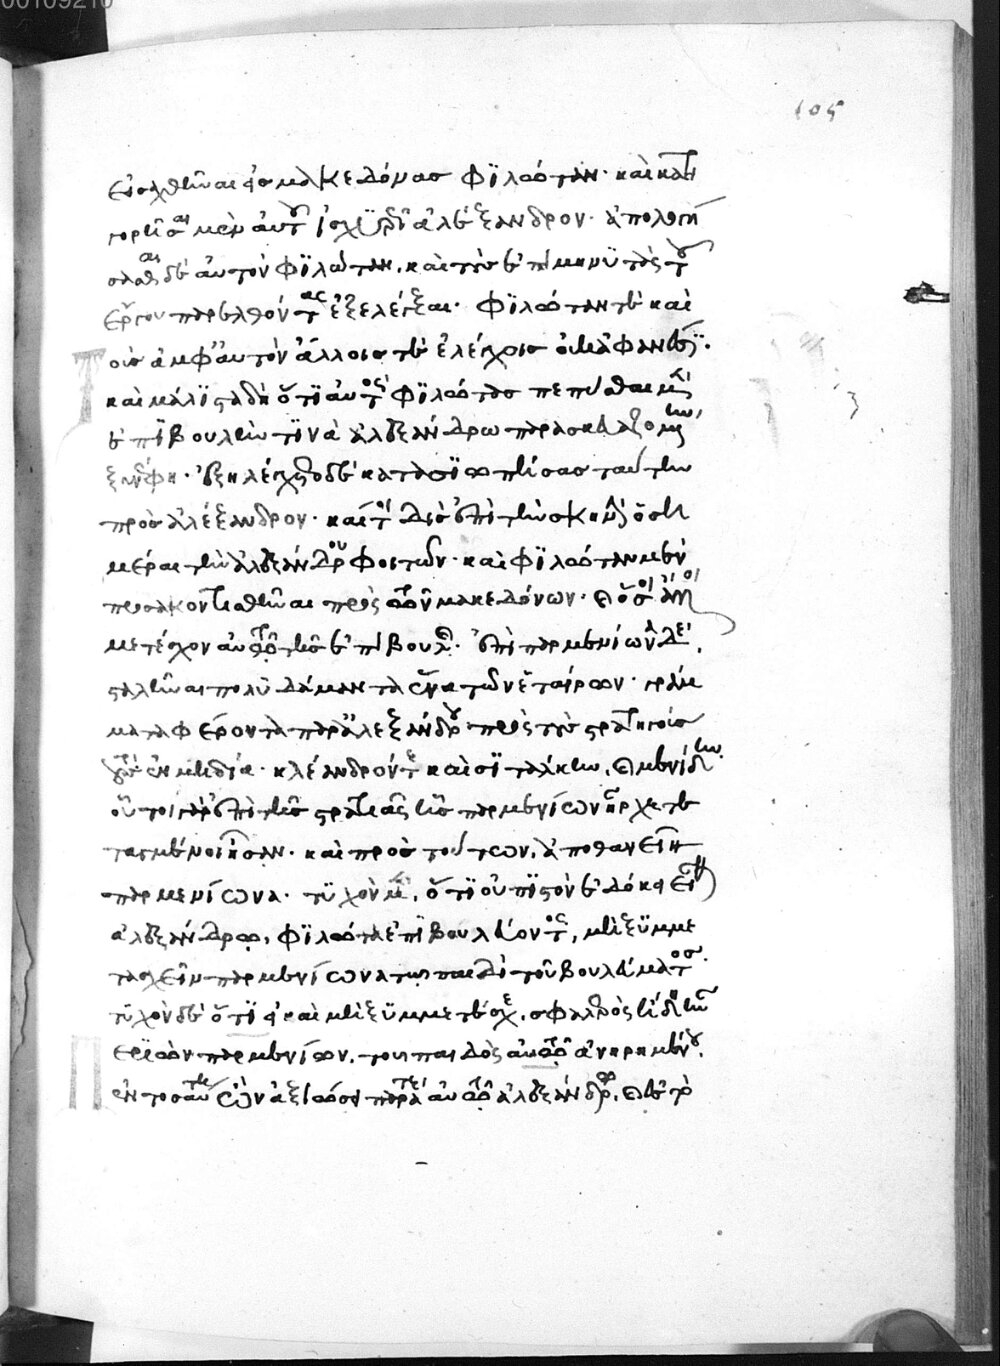 εἰσαχθῆναι ἐς μακεδόνας φϊλώταν· καὶ κατη
γορῆσαι μὲν αὐτοῦ ἰσχϋρῶς ἀλέξανδρον· ἀπολογή
σασθαι δὲ αὐτὸν φϊλώταν. καὶ τοὺς ἐπιμηνϋτὰς τοῦ
ἔργου παρελθόντας ἐξελέγξαι· φϊλώταν τὲ καὶ
τοὺς ἀμφ' αὐτὸν ἄλλοις τὲ ἐλέγχοις οὐκ ἀφανέσϊ·
καὶ μάλϊστα δὴ ὅτϊ αὐτὸς φϊλώτας πεπύσθαι μὲν
ἐπϊβουλήν τϊνὰ ἀλεξάνδρω παρασκευαζομένην
ξυνέφη· ἐξηλέγχετο δὲ κατασϊωπήσας ταύτην
πρὸς ἀλέξανδρον· καί τοι δὶς ἐπὶ τὴν σκηνὴν ὅση
μέραι τὴν ἀλεξάνδρου φοιτῶν· καὶ φϊλώταν μὲν
προσακοντισθῆναι πρὸς τῶν μακεδόνων· καὶ ὅσοι ἄλλοι
μετέσχον αὐτῶ τῆς ἐπιβουλῆς· ἐπὶ παρμενίωνα δὲ,
σταλῆναι πολϋδάμαντα ἕνα τῶν ἑταίρων· γράμ
ματα φέροντα παρ' ἀλεξάνδρου πρὸς τοὺς στρατηγοὺς
τοὺς ἐν μηδία· κλέανδρόν τε καὶ σϊτάλκην, καὶ μενίδην.
οὗτοι γὰρ ἐπὶ τῆς στρατιᾶς ἧς παρμενίων ἦρχε τε
ταγμένοι ἦσαν· καὶ πρὸς τούτων, ἀποθανεῖν
παρμενίωνα· τϋχὸν μὲν, ὅτϊ οὐ πϊστὸν ἐδόκει εἶναι
ἀλεξάνδρω, φϊλώτα ἐπϊβουλεύοντος, μὴ ξϋμμε
τασχεῖν παρμενίωνα τῶ παιδὶ τοῦ βουλεύματος·
τϋχὸν δὲ ὅτϊ εἰ καὶ μὴ ξϋμμετέσχε, σφαλερὸς ἤδη ἦν
περϊὼν παρμενίων, τοῦ παιδὸς αὐτοῦ ἀνηρημένου.
ἐν τοσαύτη ὢν ἀξϊώσει παρά τε αὐτῶ ἀλεξάνδρω, καὶ ἐς τὸ